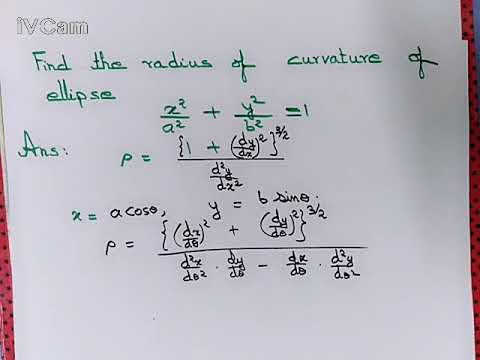 iVCam
Find the radius of curvature of
ellipse
x²/a² + y²/b² = 1
Ans: ρ = {1 + (dy/dx)²}^3/2 / d²y/dx²
x = a cosθ, y = b sinθ.
ρ = {(dx/dθ)² + (dy/dθ)²}^3/2 / d²x/dθ² · dy/dθ − dx/dθ · d²y/dθ²